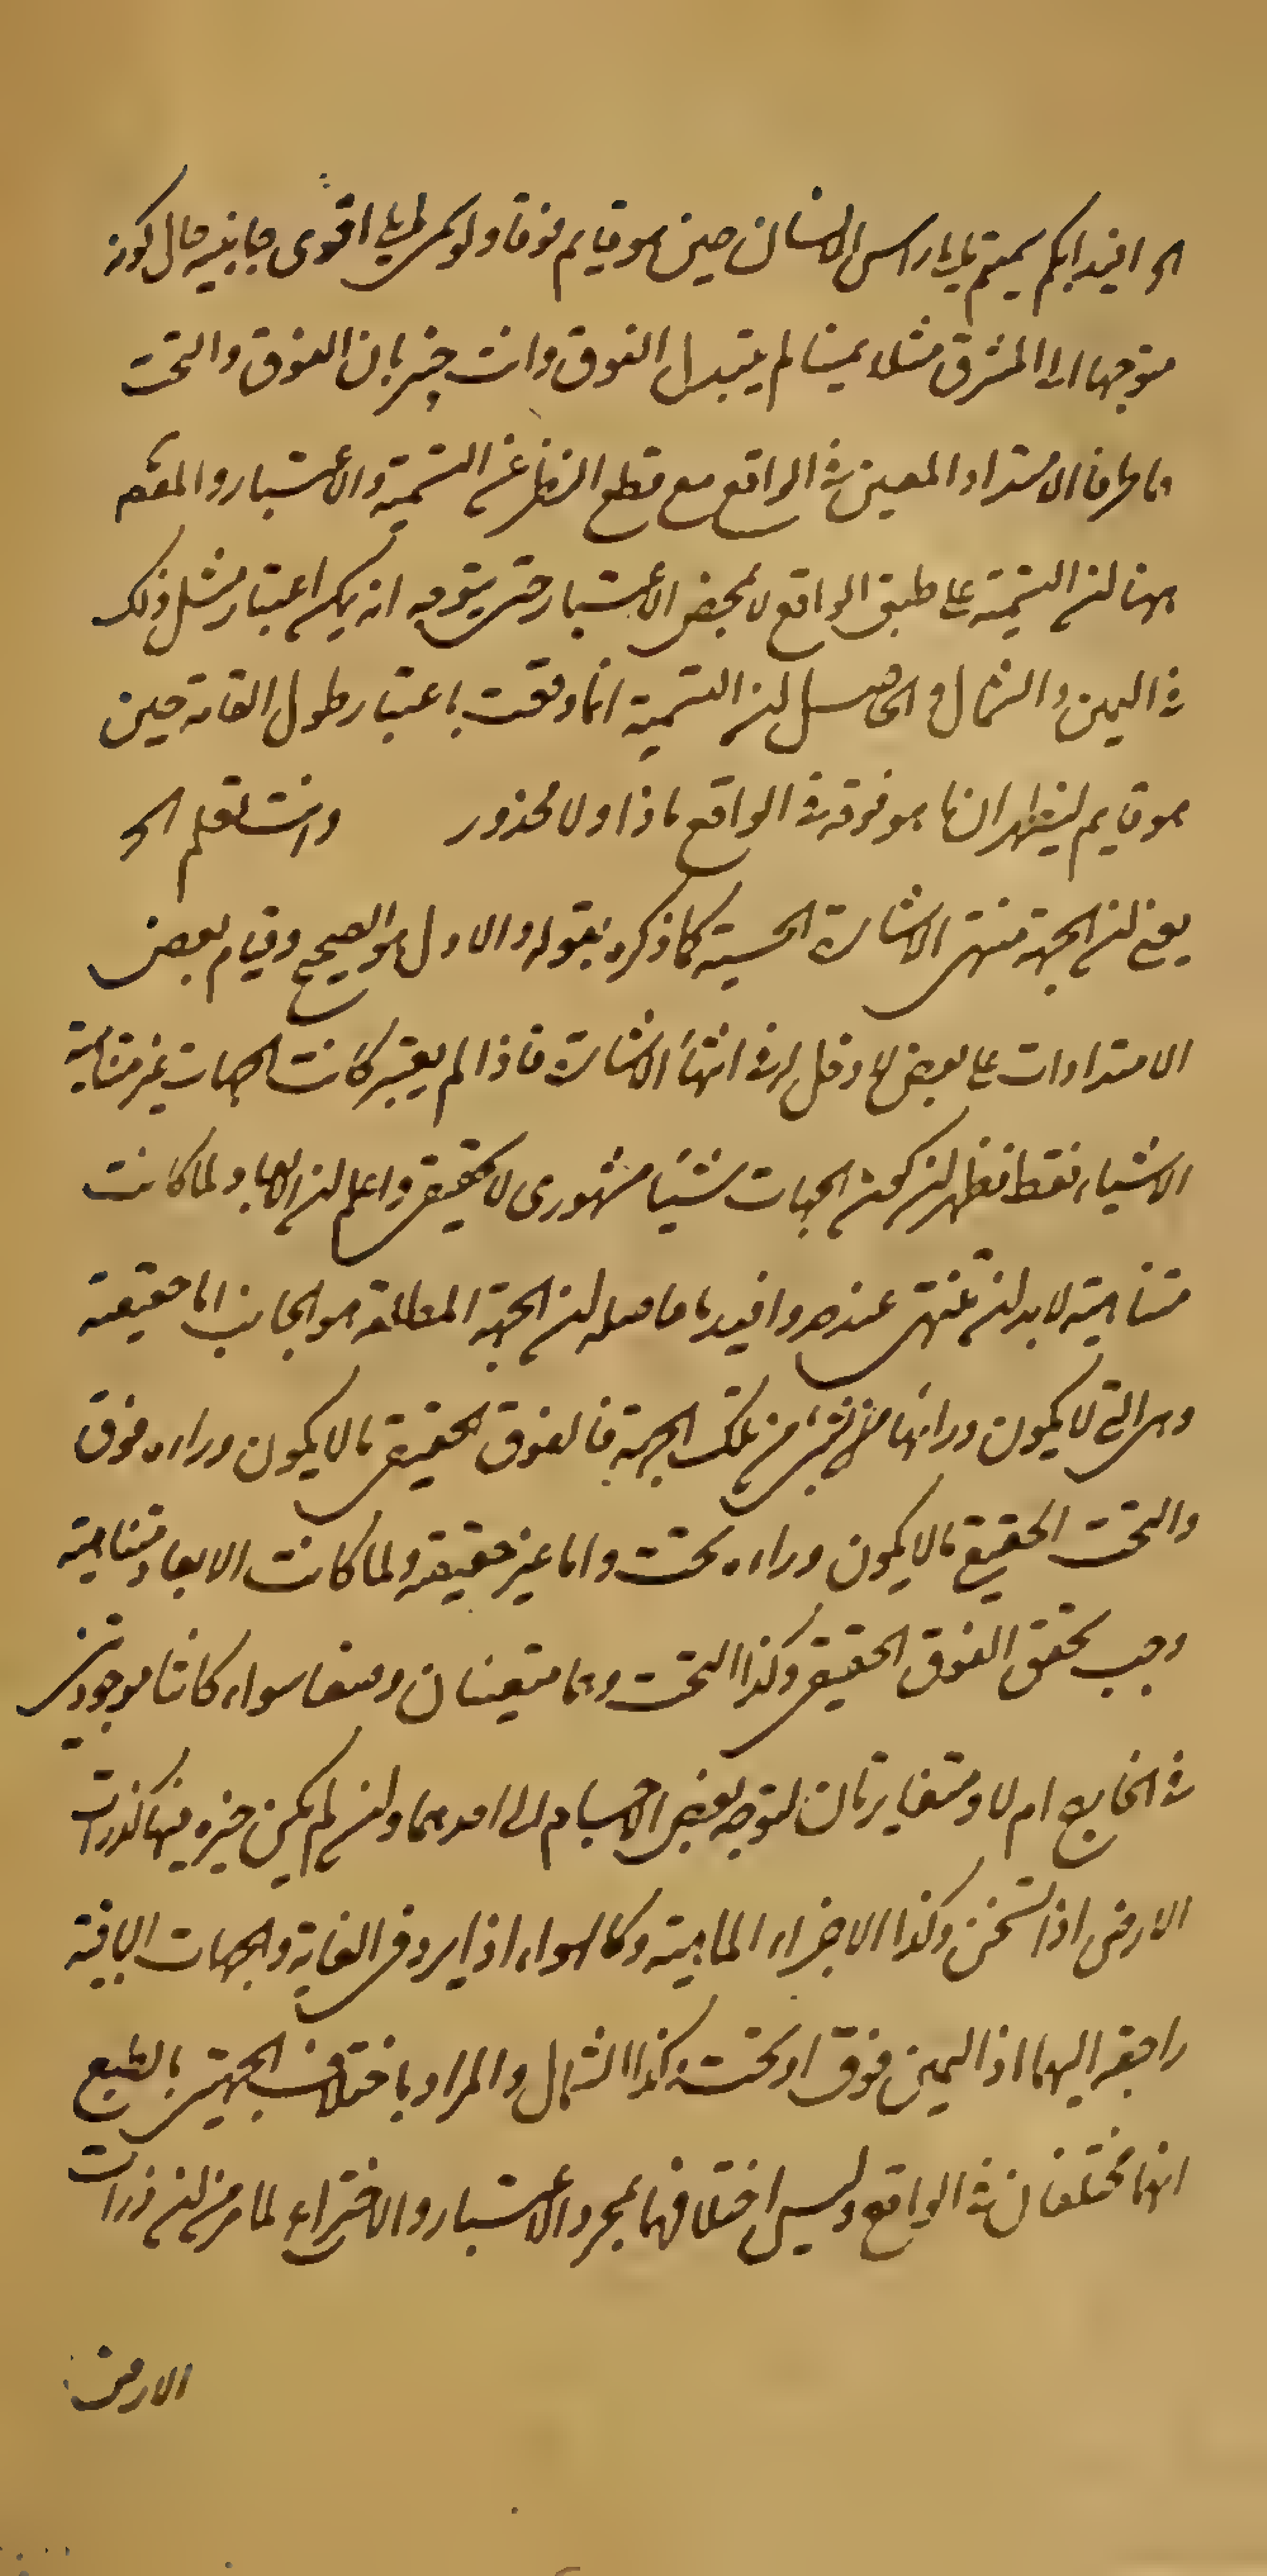 الخ افيد انكم سميتم ما يلي راس الانسان حين هو قايم فوقا ولو سمى ما يلي اقوى جانبيه حال كونه
متوجها الى المشرق مثلا يمينا لم يتبدل الفوق وانت خبير بان الفوق والتحت
هما طرفا الامتداد المعين فى الواقع مع قطع النظر عن التسمية والاعتبار والمقصم
ههنا ان التسمية على طبق الواقع لا بمحض الاعتبار حتى يتوجه انه يمكن اعتبار مثل ذلك
فى اليمين والشمال والحاصل ان التسمية انما وقعت باعتبار طول القامة حين
هو قايم ليظهر ان ما هو فوقه فى الواقع ماذا ولا محذور وانت تعلم الخ
يعنى ان الجهة منتهى الاشارة الحسية كما ذكره بقوله والاول هو الصحيح وقيام بعض
الامتدادات على بعض لا دخل له فى انتهاء الاشارة فاذا لم يعتبر كانت الجهات غير متناهية
الاشياء فقط فظهر ان كون الجهات ستا مشهورى لا تحقيقى واعلم ان الابعاد لما كانت
متناهية لابد ان تنتهى عنده وافيد ما حاصله ان الجهة المطلقة هو الجانب اما حقيقية
وهى التى لا يكون ورائها شىء من تلك الجهة فالفوق الحقيقى ما لا يكون وراءه فوق
والتحت الحقيقى ما لا يكون وراءه تحت واما غير حقيقية ولما كانت الابعاد متناهية
وجب تحقق الفوق الحقيقى وكذا التحت وهما متعينان وضعا سواء كانتا موجودتين
فى الخارج ام لا ومتغايرتان لتوجه بعض الاجسام الى احدهما وان لم يكن حيزه فيها كذرات
الارض اذا تسخن وكذا الاجزاء المائية وكالهواء اذا برد فى الغاية والجهات الباقية
راجعة اليهما اذ اليمين فوق او تحت وكذا الشمال والمراد باختلاف الجهتين بالطبع
انهما مختلفان فى الواقع وليس اختلافهما بمجرد الاعتبار والاختراع لما مر من ان ذرات
الارض